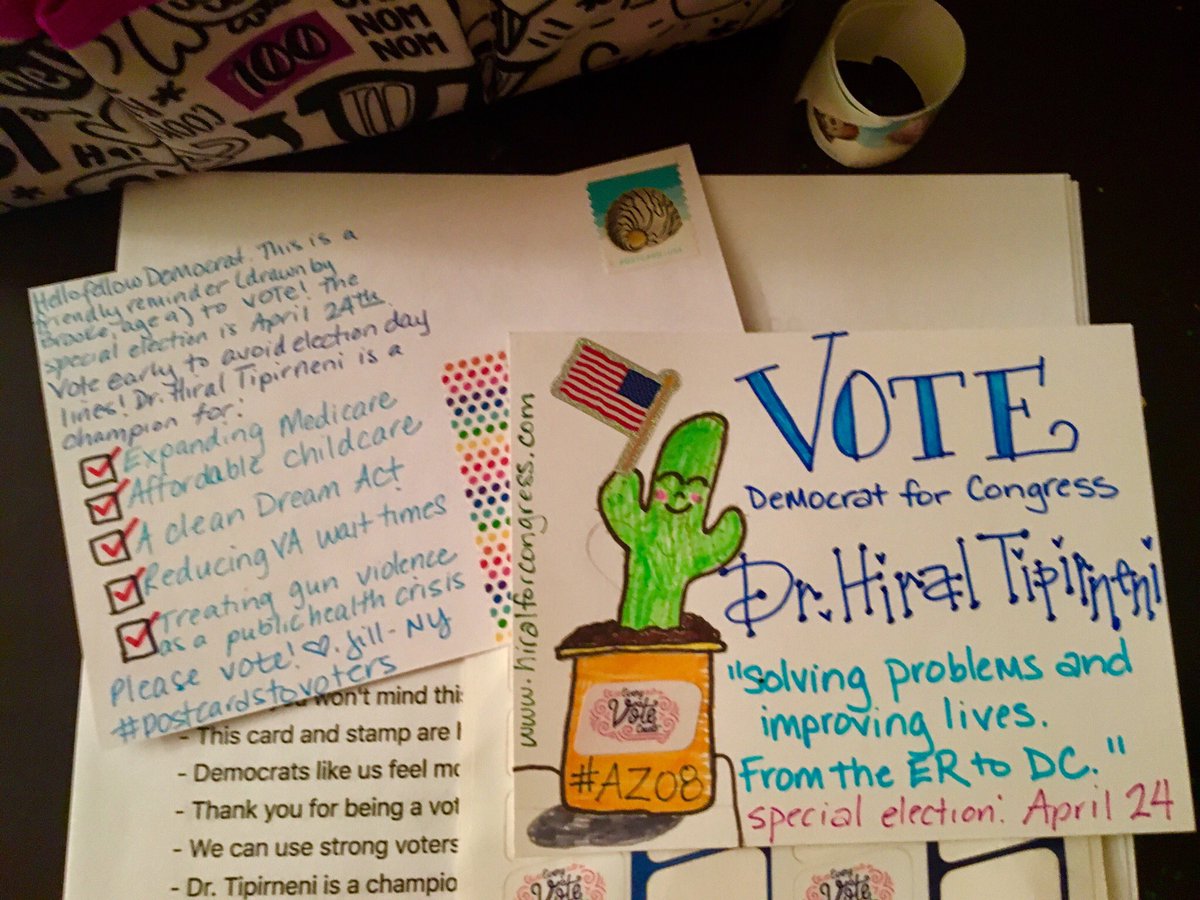 100
NOM
NOM
100
POSTCARD USA
Hello fellow Democrat. This is a
friendly reminder (drawn by
Brooke, age 9) to VOTE! The
special election is April 24th.
Vote early to avoid election day
lines! Dr. Hiral Tipirneni is a
champion for:
Expanding Medicare
Affordable childcare
A clean Dream Act
Reducing VA wait times
Treating gun violence
as a public health crisis
Please vote! ♡. Jill - NY
#postcardstovoters
www.hiralforcongress.com
VOTE
Democrat for Congress
Dr. Hiral Tipirneni
"Solving problems and
improving lives.
From the ER to DC."
special election: April 24
Every
Vote
Counts
#AZ08
won't mind this
- This card and stamp are
- Democrats like us feel
- Thank you for being a
- We can use strong voters
- Dr. Tipirneni is a
Every
Vote
Every
Vote